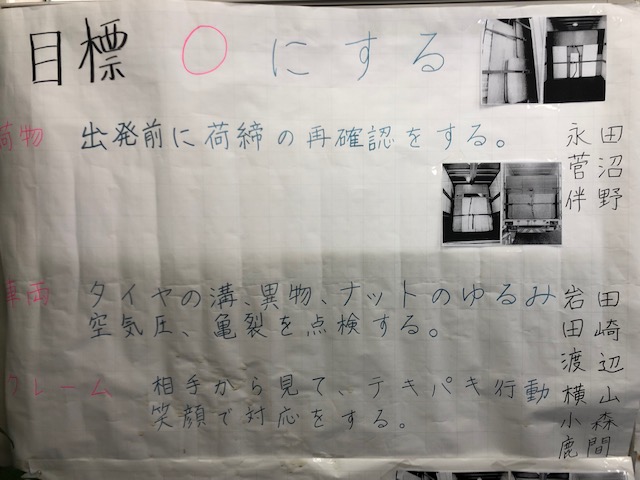 目標 〇にする
荷物 出発前に荷締の再確認をする。
永田
菅沼
伴野
車両 タイヤの溝、異物、ナットのゆるみ
空気圧、亀裂を点検する。
岩田
田崎
渡辺
クレーム 相手から見て、テキパキ行動
笑顔で対応をする。
横山
小森
鹿間